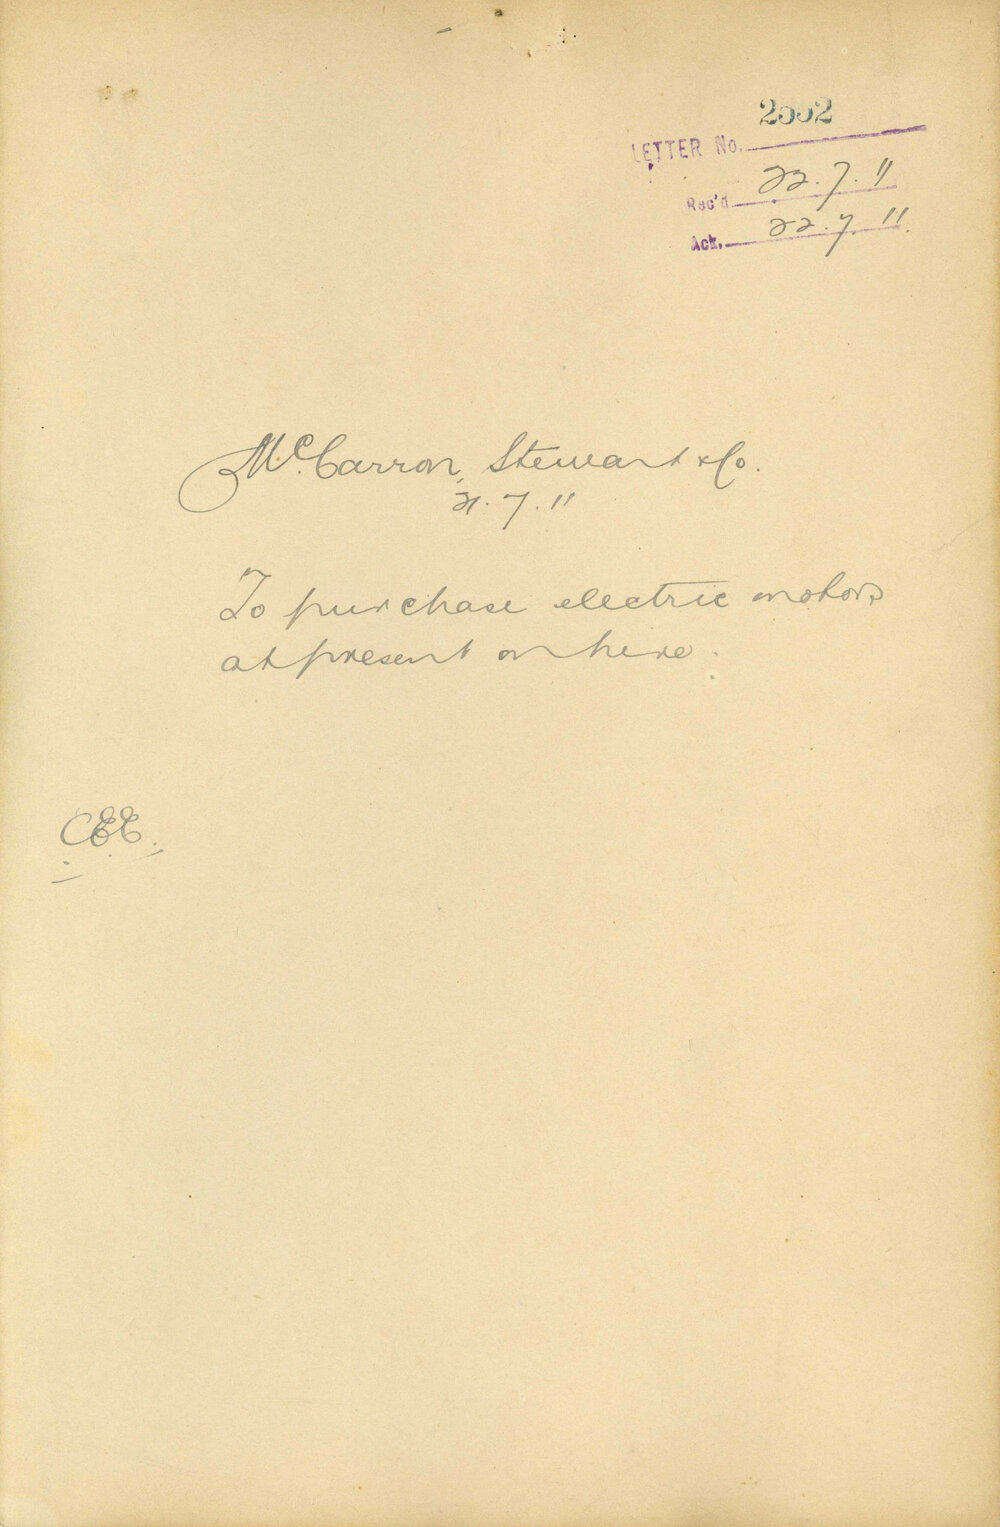 LETTER No. 2552
Rec'd 22.7.11
Ack. 22.7.11.
McCarron, Stewart & Co.
21.7.11
To purchase electric motors
at present on hire.
CEE.